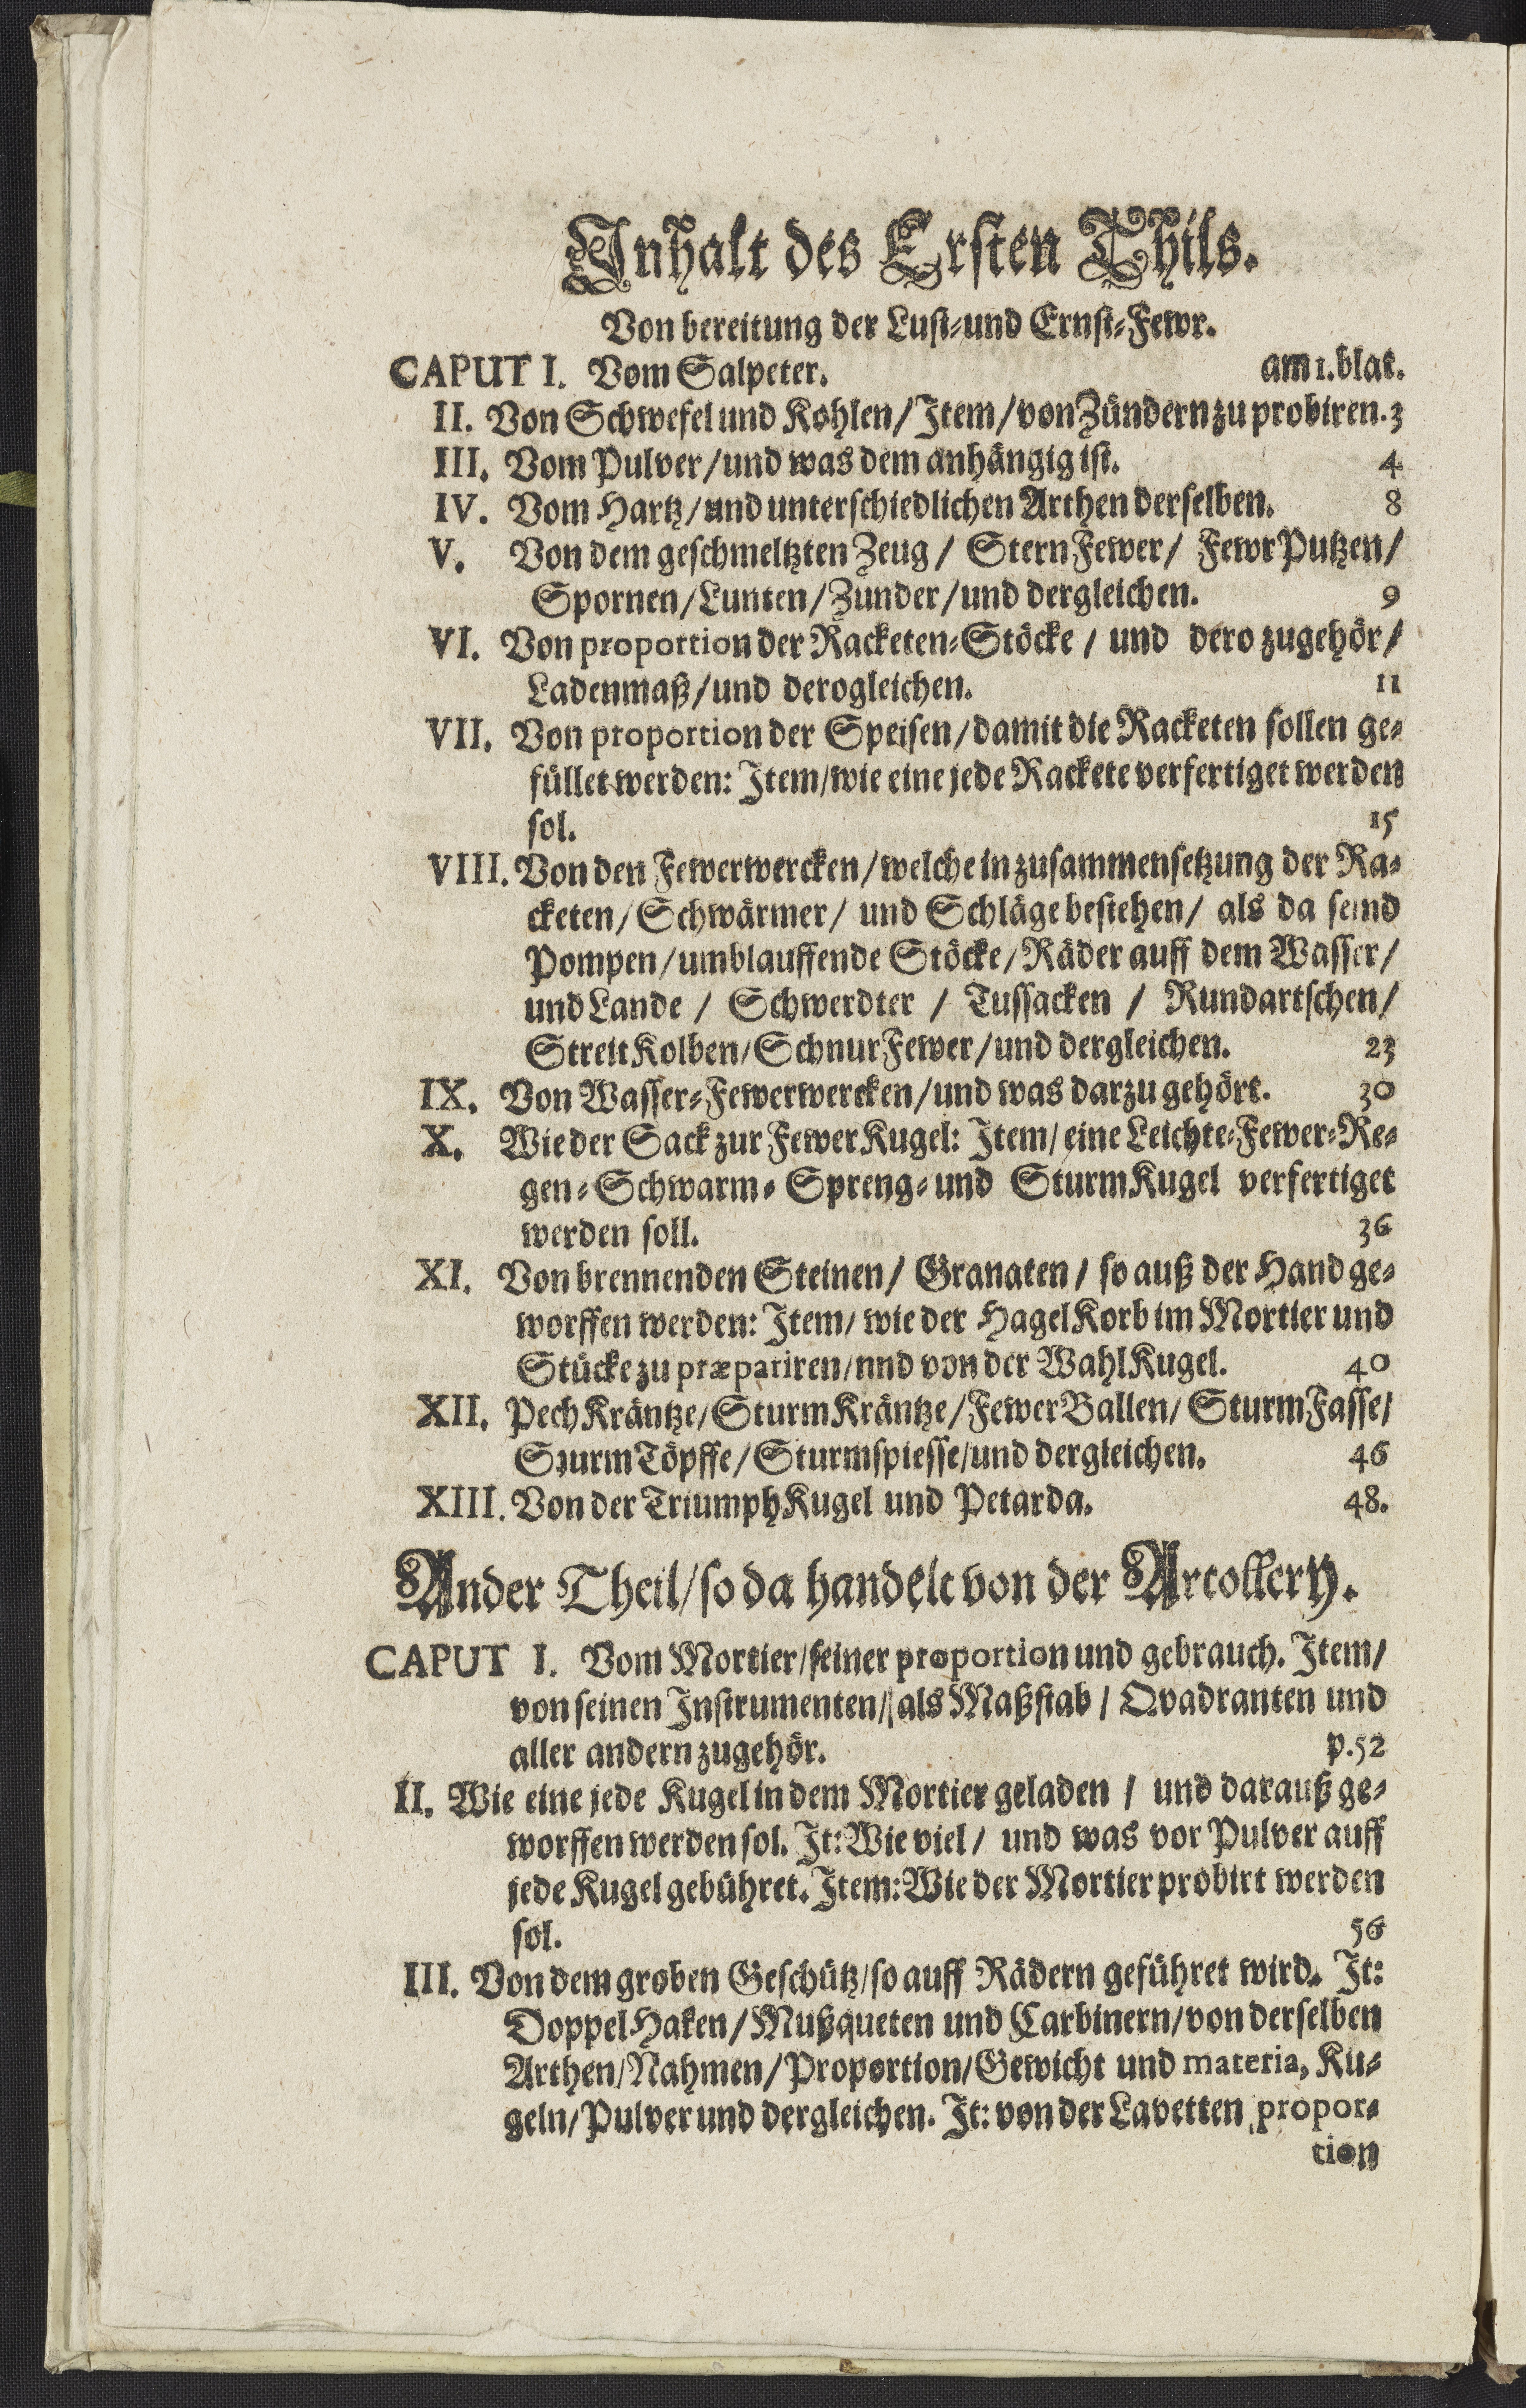 Inhalt des Ersten Thils.
Von bereitung der Lust-und Ernst-Fewr.
CAPUT I. Vom Salpeter. am 1. blat.
II. Von Schwefel und Kohlen/ Item/ von Zündern zu probiren. 3
III. Vom Pulver/ und was dem anhängig ist. 4
IV. Vom Hartz/ und unterschiedlichen Arthen derselben. 8
V. Von dem geschmeltzten Zeug/ SternFewer/ FewrPutzen/
Spornen/ Lunten/ Zünder/ und dergleichen. 9
VI. Von proportion der Racketen-Stöcke/ und dero zugehör/
Ladenmaß/ und derogleichen. 11
VII. Von proportion der Speisen/ damit die Racketen sollen ge-
füllet werden: Item/ wie eine jede Rackete verfertiget werden
sol. 15
VIII. Von den Fewerwercken/ welche in zusammensetzung der Ra-
cketen/ Schwärmer/ und Schläge bestehen/ als da seind
Pompen/ umblauffende Stöcke/ Räder auff dem Wasser/
und Lande/ Schwerdter/ Tussacken/ Rundartschen/
StreitKolben/ SchnurFewer/ und dergleichen. 23
IX. Von Wasser-Fewerwercken/ und was darzu gehört. 30
X. Wie der Sack zur FewerKugel: Item/ eine Leichte-Fewer-Re-
gen-Schwarm-Spreng-und SturmKugel verfertiget
werden soll. 36
XI. Von brennenden Steinen/ Granaten/ so auß der Hand ge-
worffen werden: Item/ wie der HagelKorb im Mortier und
Stücke zu præpariren/ nnd von der WahlKugel. 40
XII. PechKräntze/ SturmKräntze/ FewerBallen/ SturmFasse/
SturmTöpffe/ Sturmspiesse/ und dergleichen. 46
XIII. Von der TriumphKugel und Petarda. 48.
Ander Theil/ so da handelt von der Artollery.
CAPUT I. Vom Mortier/ seiner proportion und gebrauch. Item/
von seinen Instrumenten/ als Maßstab/ Qvadranten und
aller andern zugehör. p. 52
II. Wie eine jede Kugel in dem Mortier geladen/ und darauß ge-
worffen werden sol. It: Wie viel/ und was vor Pulver auff
jede Kugel gebühret. Item: Wie der Mortier probirt werden
sol. 56
III. Von dem groben Geschütz/ so auff Rädern geführet wird. It:
DoppelHaken/ Mußqueten und Carbinern/ von derselben
Arthen/ Nahmen/ Proportion/ Gewicht und materia, Ku-
geln/ Pulver und dergleichen. It: von der Lavetten propor-
tion